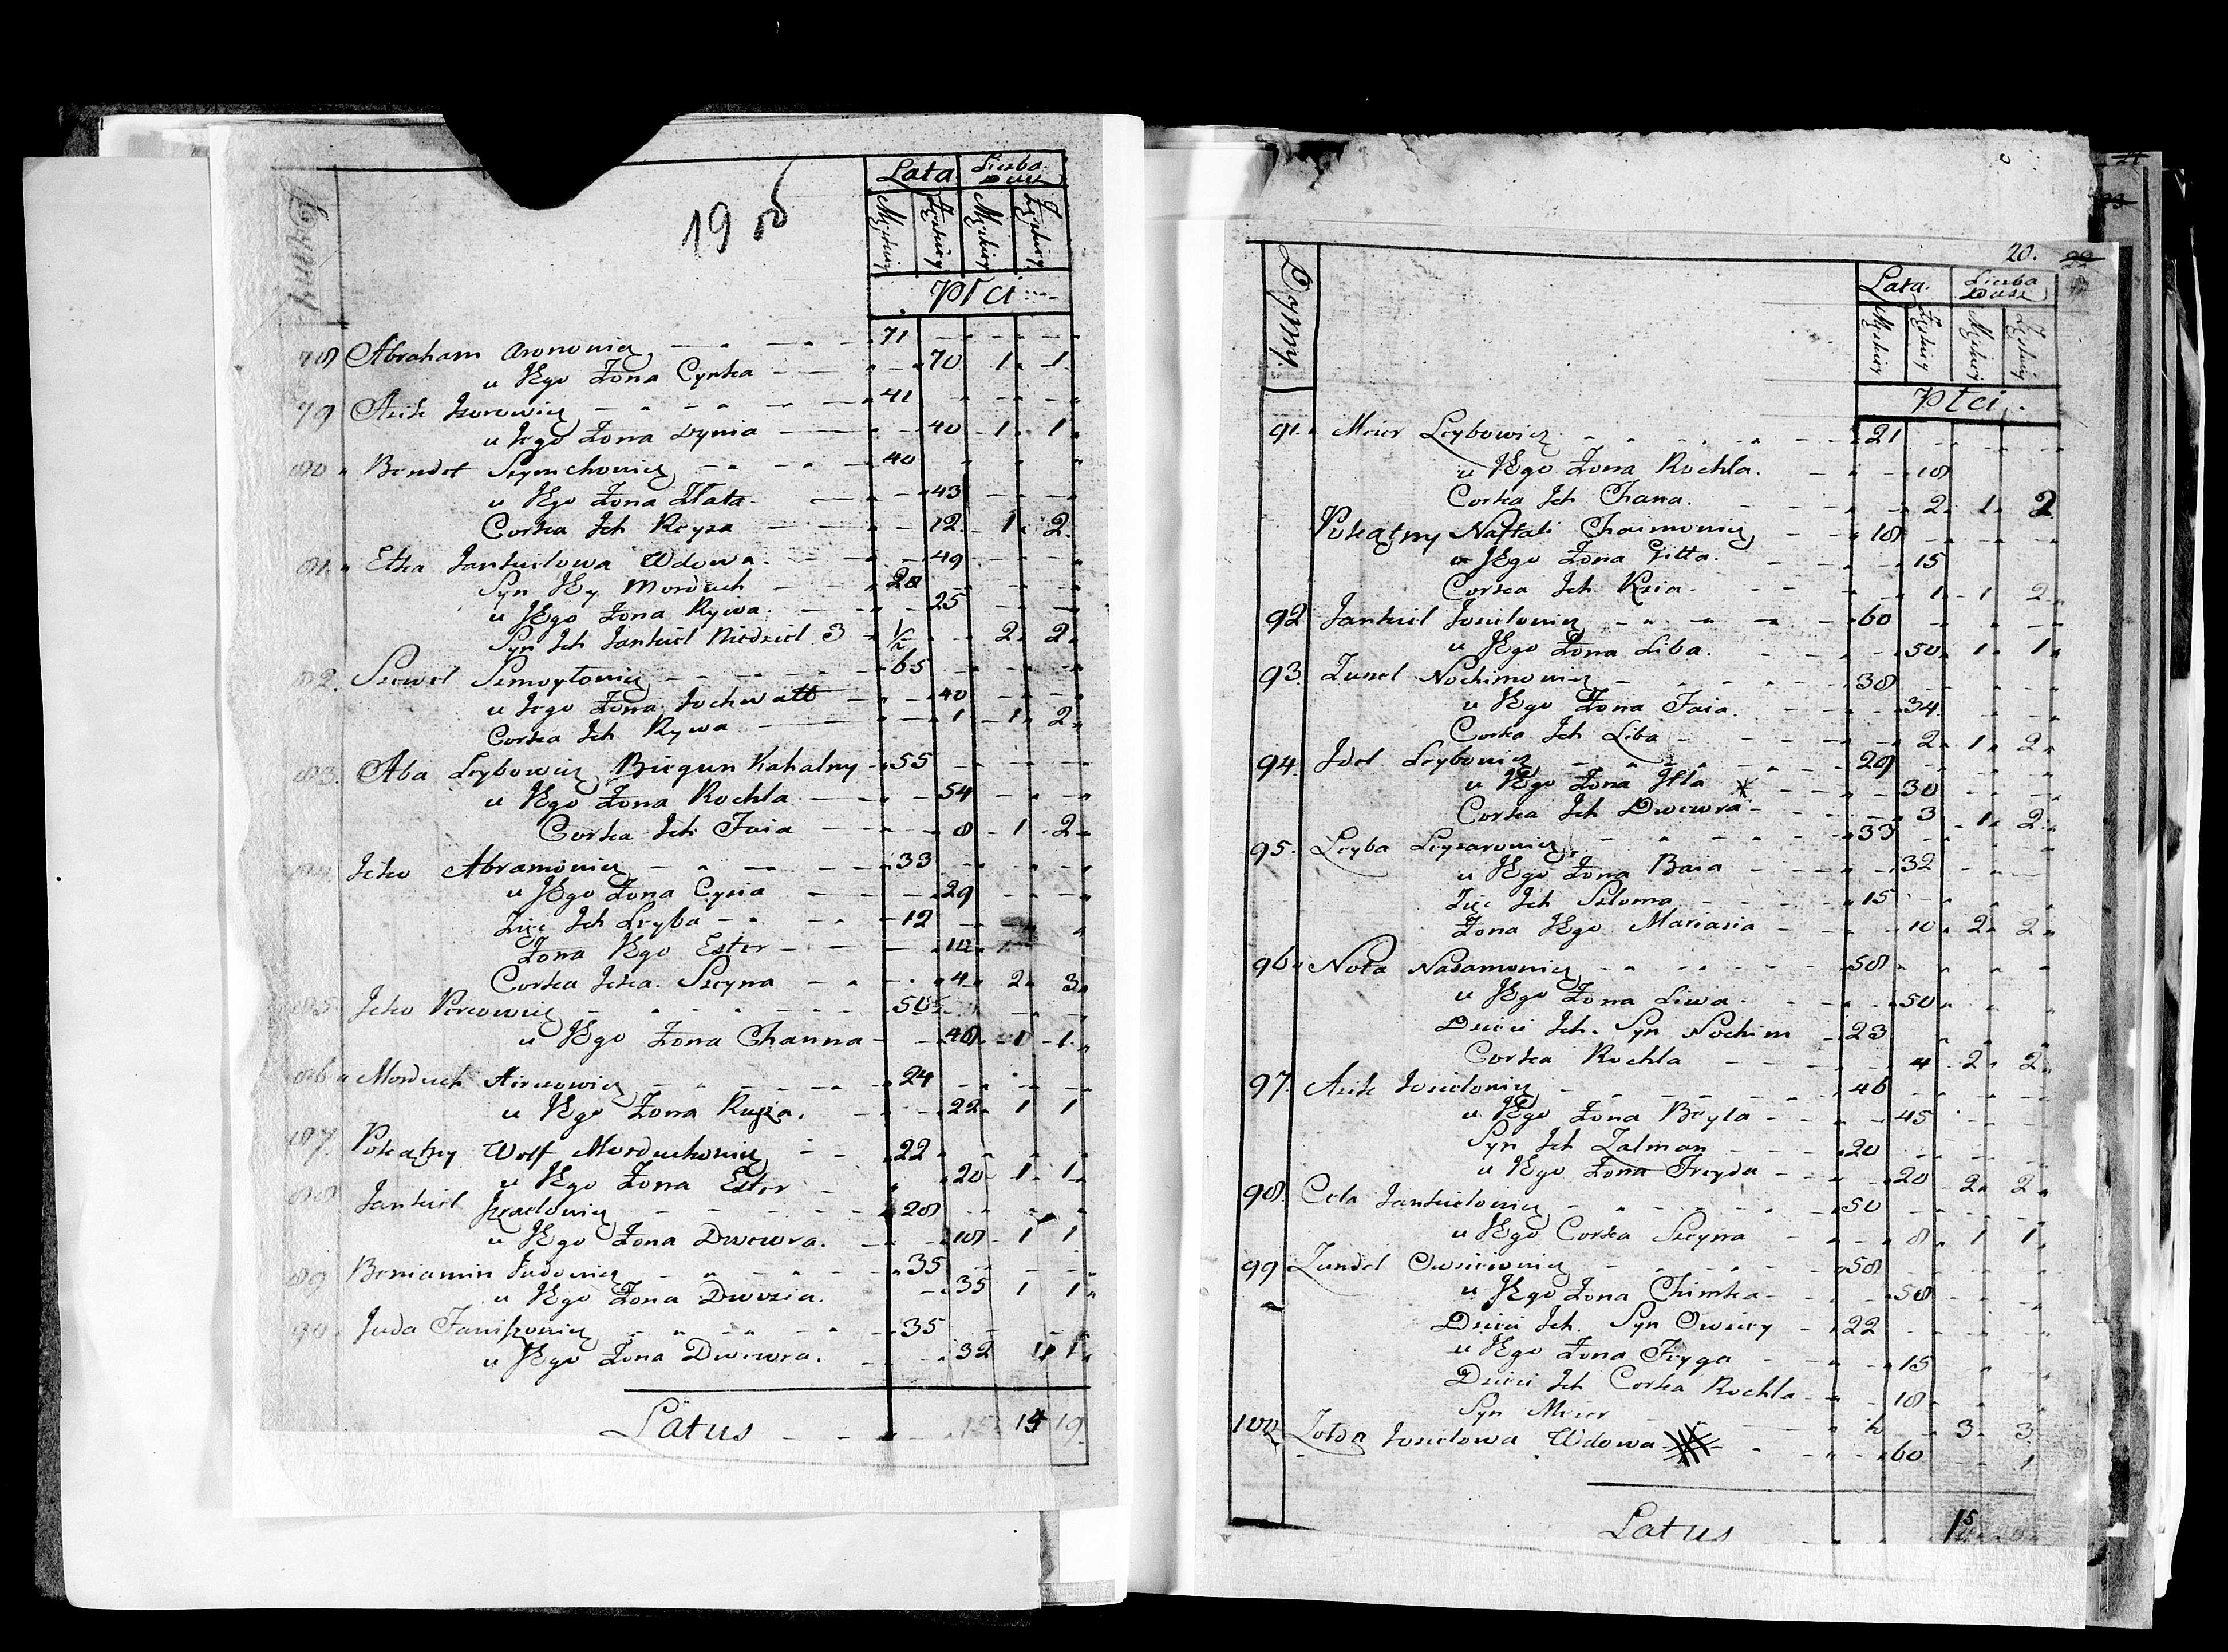 19 об
Dymy
Lata. Liczba Dusz
Męzkiey Żęnskiey Męzkiey Żęnskiey
Płci
78 Abraham Aronowicz 71
u Jego Żona Cyrka 70 1 1
79 Azik Jzorowicz 41
u Jego Żona Dynia 40 1 1
80 Bendet Szymchowicz 40
u Jego Żona Złata 43
Corka Jch Reyza 12 1 2
81 Etka Jankielowa Wdowa 49
Syn Jey Morduch 28
u Jego Żona Rywa 25
Syn Jch Jankiel Niedziel 3 1/2 2 2
82. Szewel Szmoyłowicz 65
u Jego Żona Jochwatt 40
Corka Jch Rywa 1 1 2
83. Aba Leybowicz Biegun Kahalny 55
u Jego Żona Rochla 54
Corka Jch Faia 8 1 2
84. Jcko Abramowicz 33
u Jego Żona Cysia 29
Zięć Jch Leyba 12
Żona Jego Ester 12
Corka Jcka. Szeyna 4 2 3
85. Jcko Percowicz 50
u Jego Żona Channa 48 1 1
86 Morduch 24
u Jego Żona 22 1 1
87. Pokątny Wolf Morduchowicz 22
u Jego Żona Ester 20 1 1
88 Jankiel Jzraelowicz 28
u Jego Żona Dwowra. 18 1 1
89 Beniamin Judowicz 35
u Jego Żona Dwozia. 35 1 1
90. Juda 35
u Jego Żona Dwowra. 32 1 1
Latus 15 19
20. 22
Dymy
Lata. Liczba Dusz
Męzkiey Żęskiey Męzkiey Żęskiey
Płci.
91. Meier Leybowicz 21
u Jego Żona Rochla. 18
Corka Jch Chana. 2 1 2
Pokątny Naftali Chaimowicz 18
u Jego Żona Gitta. 15
Corka Jch Ksia. 1 1 2
92 Jankiel Josielowicz 60
u Jego Żona Liba. 50 1 1
93. Zunel Nochimowicz 38
u Jego Żona Faia. 34
Corka Jch Liba 2 1 2
94. Jdel Leybowicz 29
u Jego Żona Jtla 30
Corka Jch Dwowra 3 1 2
95. Leyba Leyzarowicz 33
u Jego Żona Basia 32
Zięć Jch Szloma 15
Żona Jego Mariasia 10 2 2
96 Nota Nasamowicz 58
u Jego Żona Liwa 50
Dzieci Jch. Syn Nochim 23
Corka Rochla 4 2 2
97. Azik Josielowicz 46
u Jego Żona Beyla 45
Syn Jch Zalman 20
u Jego Żona Freyda 20 2 2
98. Cela Jankielowicz 50
u Jego Corka Szeyna 8 1 1
99 Zundel Owsieiowicz 58
u Jego Żona Chimka 58
Dzieci Jch. Syn Owsiey 22
u Jego Żona Feyga 15
Dzieci Jch Corka Rochla 18
Syn Meier 3 3
100 Zołda Josielowa Wdowa 60 1
Latus 15